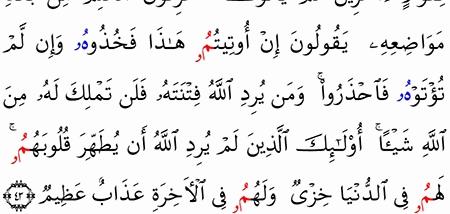 مَوَاضِعِهِۦ يَقُولُونَ إِنْ أُوتِيتُمُۥ هَٰذَا فَخُذُوهُۥ وَإِن لَّمْ
تُؤْتَوْهُۥ فَاَحْذَرُوا۟ۚ وَمَن يُرِدِ اللَّهُ فِتْنَتَهُۥ فَلَن تَمْلِكَ لَهُۥ مِنَ
اَللَّهِ شَيْـًٔاۚ أُوْلَـٰٓئِكَ اَلَّذِينَ لَمْ يُرِدِ اللَّهُ أَن يُطَهِّرَ قُلُوبَهُمُۥۚ
لَهُمُۥ فِى اَلدُّنْيَا خِزْىٌ وَلَهُمُۥ فِى اِلْأَخِرَةِ عَذَابٌ عَظِيمٌ ٤٣